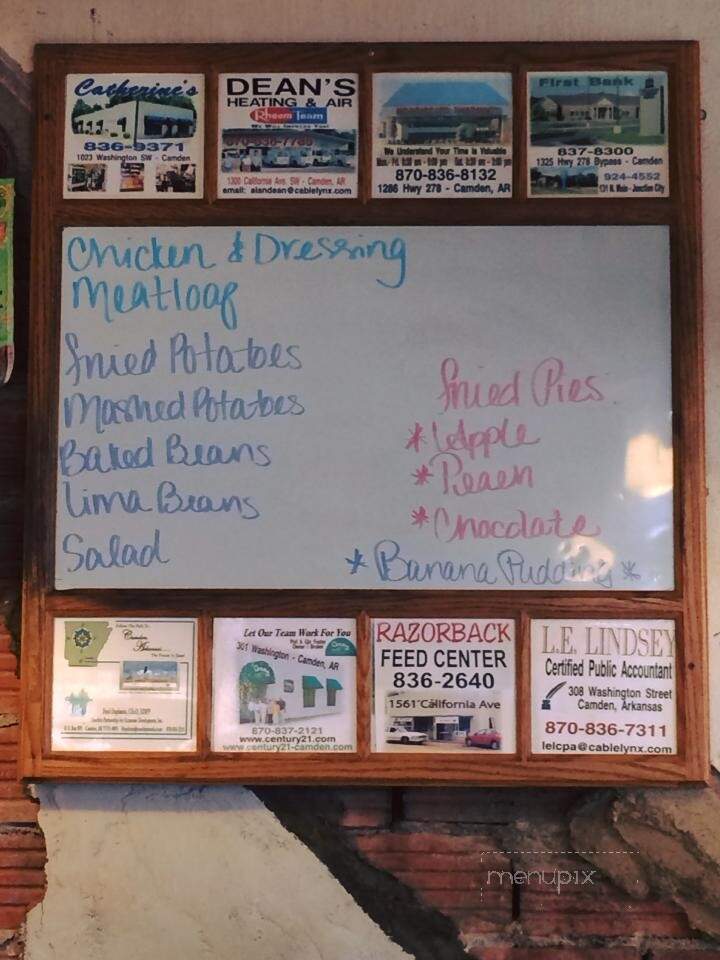 Catherine's
836-9371
1023 Washington SW - Camden
DEAN'S
HEATING & AIR
Rheem Team
1300 California Ave. SW - Camden, AR
email: alandean@cablelynx.com
We Understand Your Time is Valuable
870-836-8132
1286 Hwy 278 - Camden, AR
First Bank
837-8300
1325 Hwy 278 Bypass - Camden
924-4552
131 N. Main - Junction City
Chicken & Dressing
Meatloaf
Fried Potatoes
Mashed Potatoes
Baked Beans
Lima Beans
Salad
Fried Pies
* Apple
* Peach
* Chocolate
* Banana Pudding *
Camden,
Arkansas
Let Our Team Work For You
301 Washington - Camden, AR
870-837-2121
www.century21.com
www.century21-camden.com
RAZORBACK
FEED CENTER
836-2640
1561 California Ave
L.E. LINDSEY
Certified Public Accountant
308 Washington Street
Camden, Arkansas
870-836-7311
lelcpa@cablelynx.com
menupix